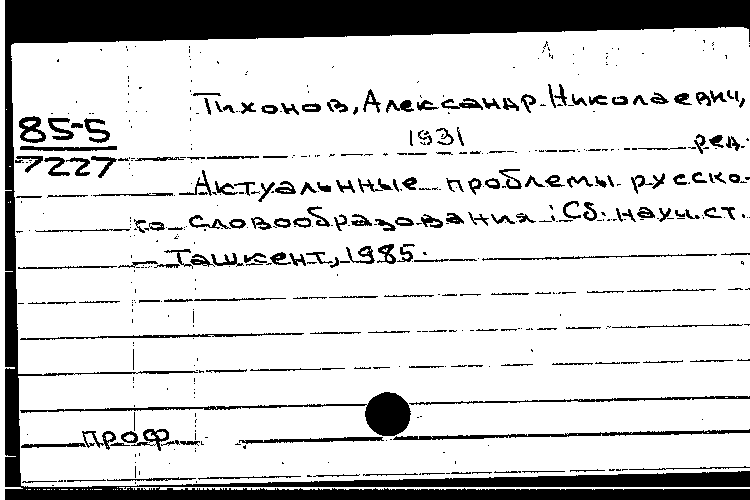 Тихонов, Александр Николаевич,
85-5
1931 ред.
7227
Актуальнные проблемы русско-
го словообразования : Сб. науч. ст.
— Ташкент, 1985.
проф